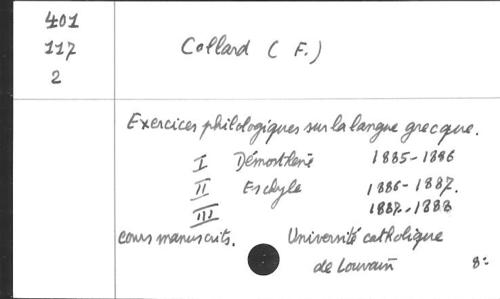 401
117
2
Collard ( F. )
Exercices philologiques sur la langue grecque.
I Démosthène 1885-1886
II Eschyle 1886-1887.
III 1887-1888
cours manuscrits. Université catholique
de Louvain 8: